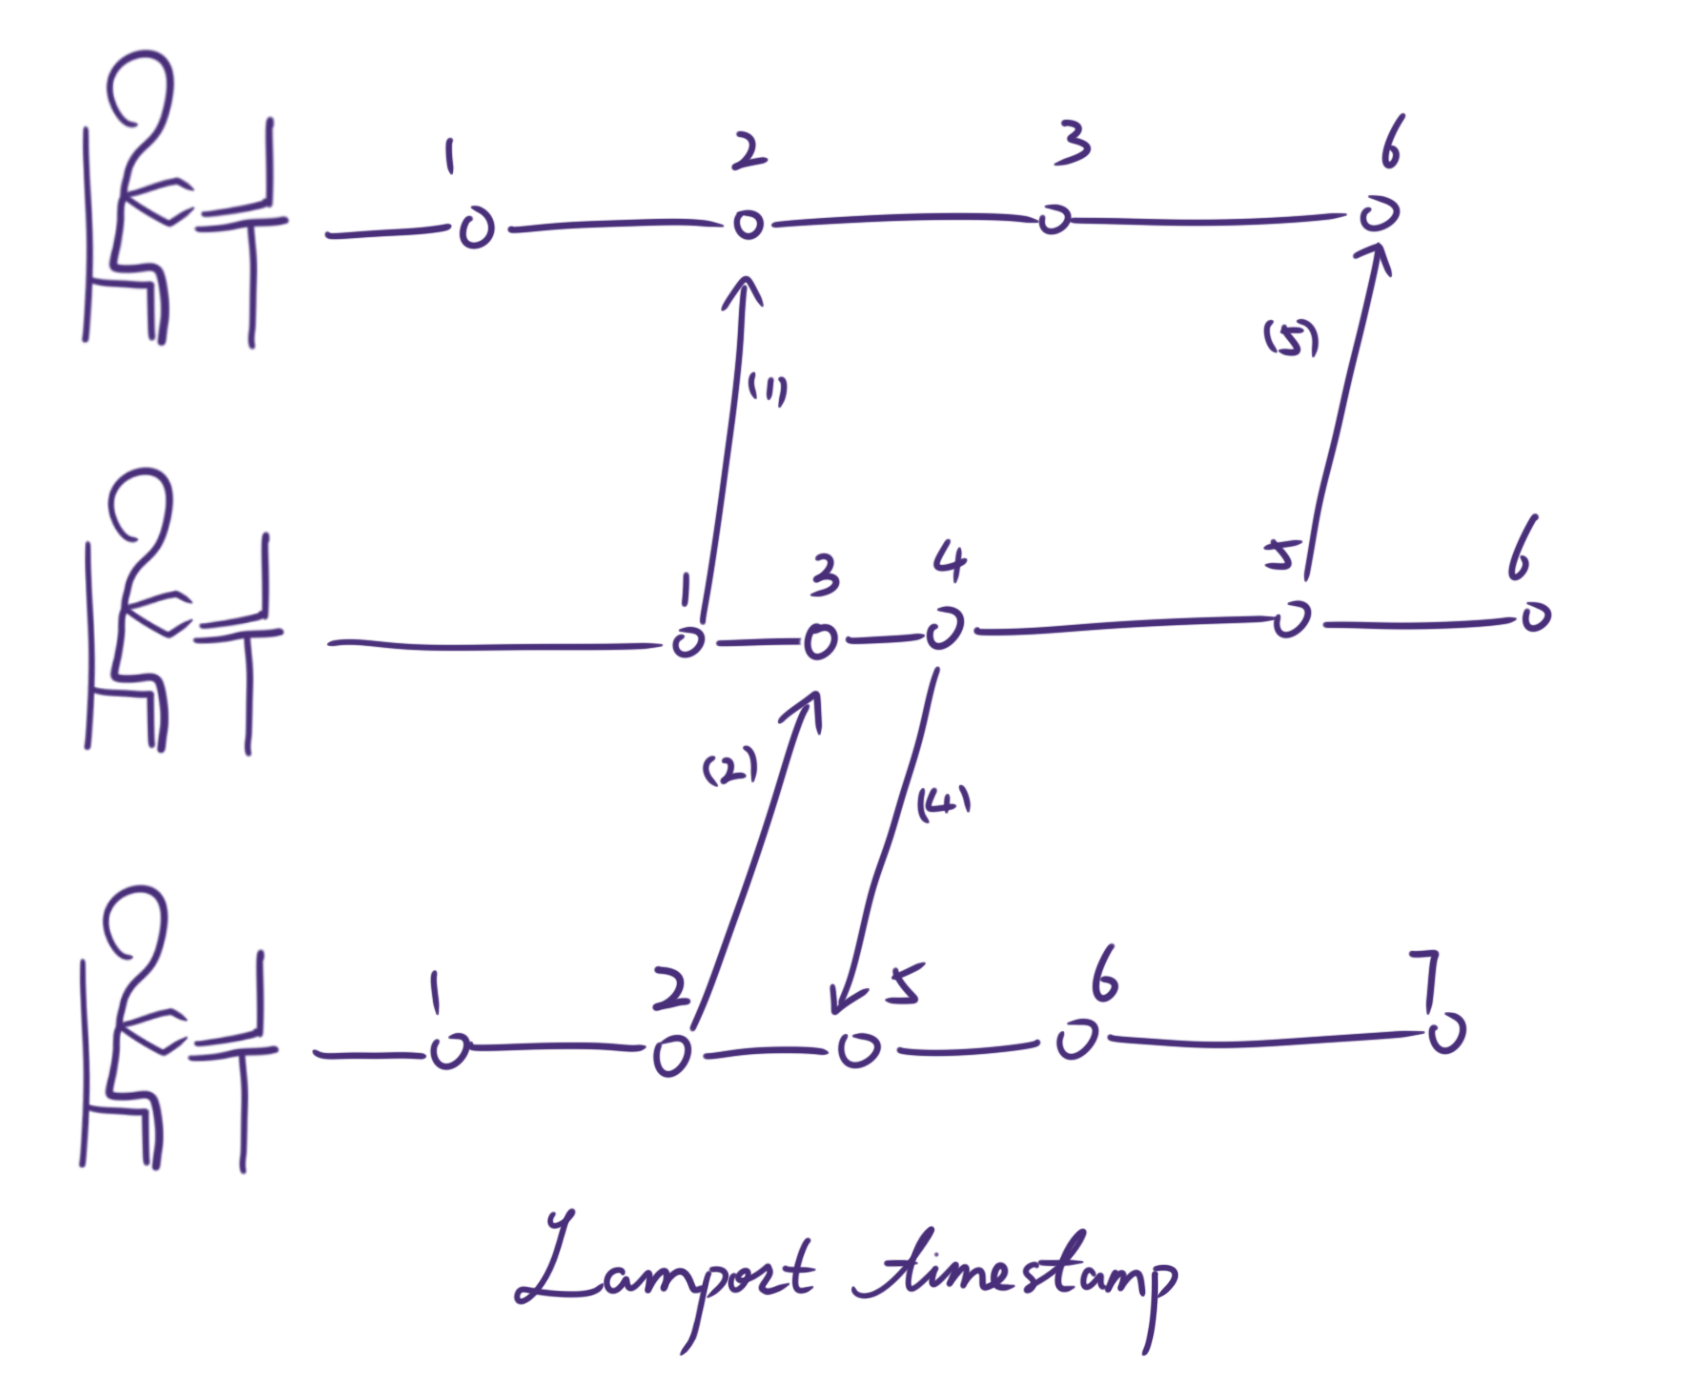 1 2 3 6
(1) (5)
1 3 4 5 6
(2) (4)
1 2 5 6 7
Lamport timestamp